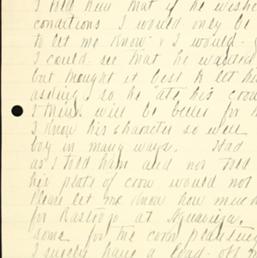 I told him that if he wished
conditions I would only be
to let me know & I would
I could see that he wanted
but thought it best to let his
asking, so he "ate his crow
I think will be better for h
I know his character so well
boy in many ways. Had
as I told him and not told
his plate of crow would not
Please let me know how much
for at
some for the corn planting
I surely have a